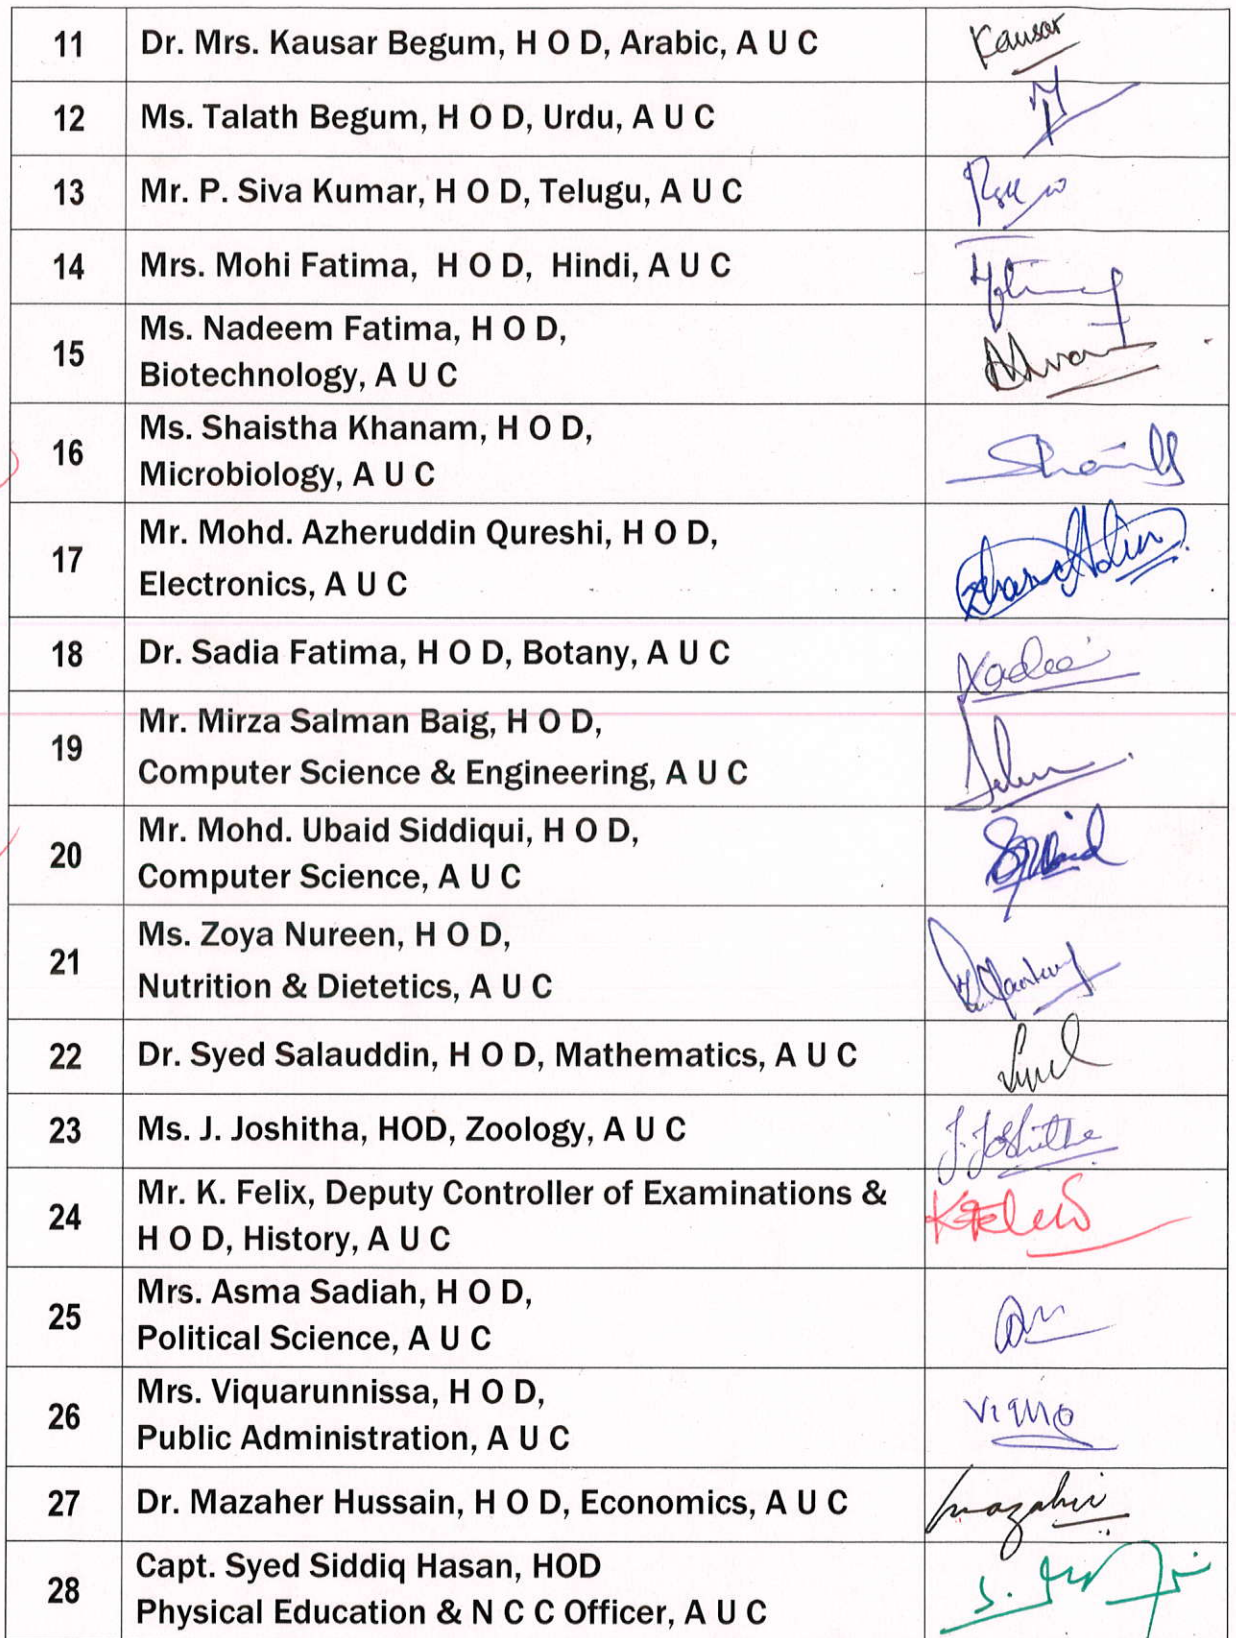 11 Dr. Mrs. Kausar Begum, H O D, Arabic, A U C Kausar
12 Ms. Talath Begum, H O D, Urdu, A U C
13 Mr. P. Siva Kumar, H O D, Telugu, A U C
14 Mrs. Mohi Fatima, H O D, Hindi, A U C
15 Ms. Nadeem Fatima, H O D,
Biotechnology, A U C
16 Ms. Shaistha Khanam, H O D,
Microbiology, A U C
17 Mr. Mohd. Azheruddin Qureshi, H O D,
Electronics, A U C
18 Dr. Sadia Fatima, H O D, Botany, A U C
19 Mr. Mirza Salman Baig, H O D,
Computer Science & Engineering, A U C
20 Mr. Mohd. Ubaid Siddiqui, H O D,
Computer Science, A U C
21 Ms. Zoya Nureen, H O D,
Nutrition & Dietetics, A U C
22 Dr. Syed Salauddin, H O D, Mathematics, A U C
23 Ms. J. Joshitha, HOD, Zoology, A U C J. Joshitha
24 Mr. K. Felix, Deputy Controller of Examinations &
H O D, History, A U C
25 Mrs. Asma Sadiah, H O D,
Political Science, A U C
26 Mrs. Viquarunnissa, H O D,
Public Administration, A U C
27 Dr. Mazaher Hussain, H O D, Economics, A U C
28 Capt. Syed Siddiq Hasan, HOD
Physical Education & N C C Officer, A U C